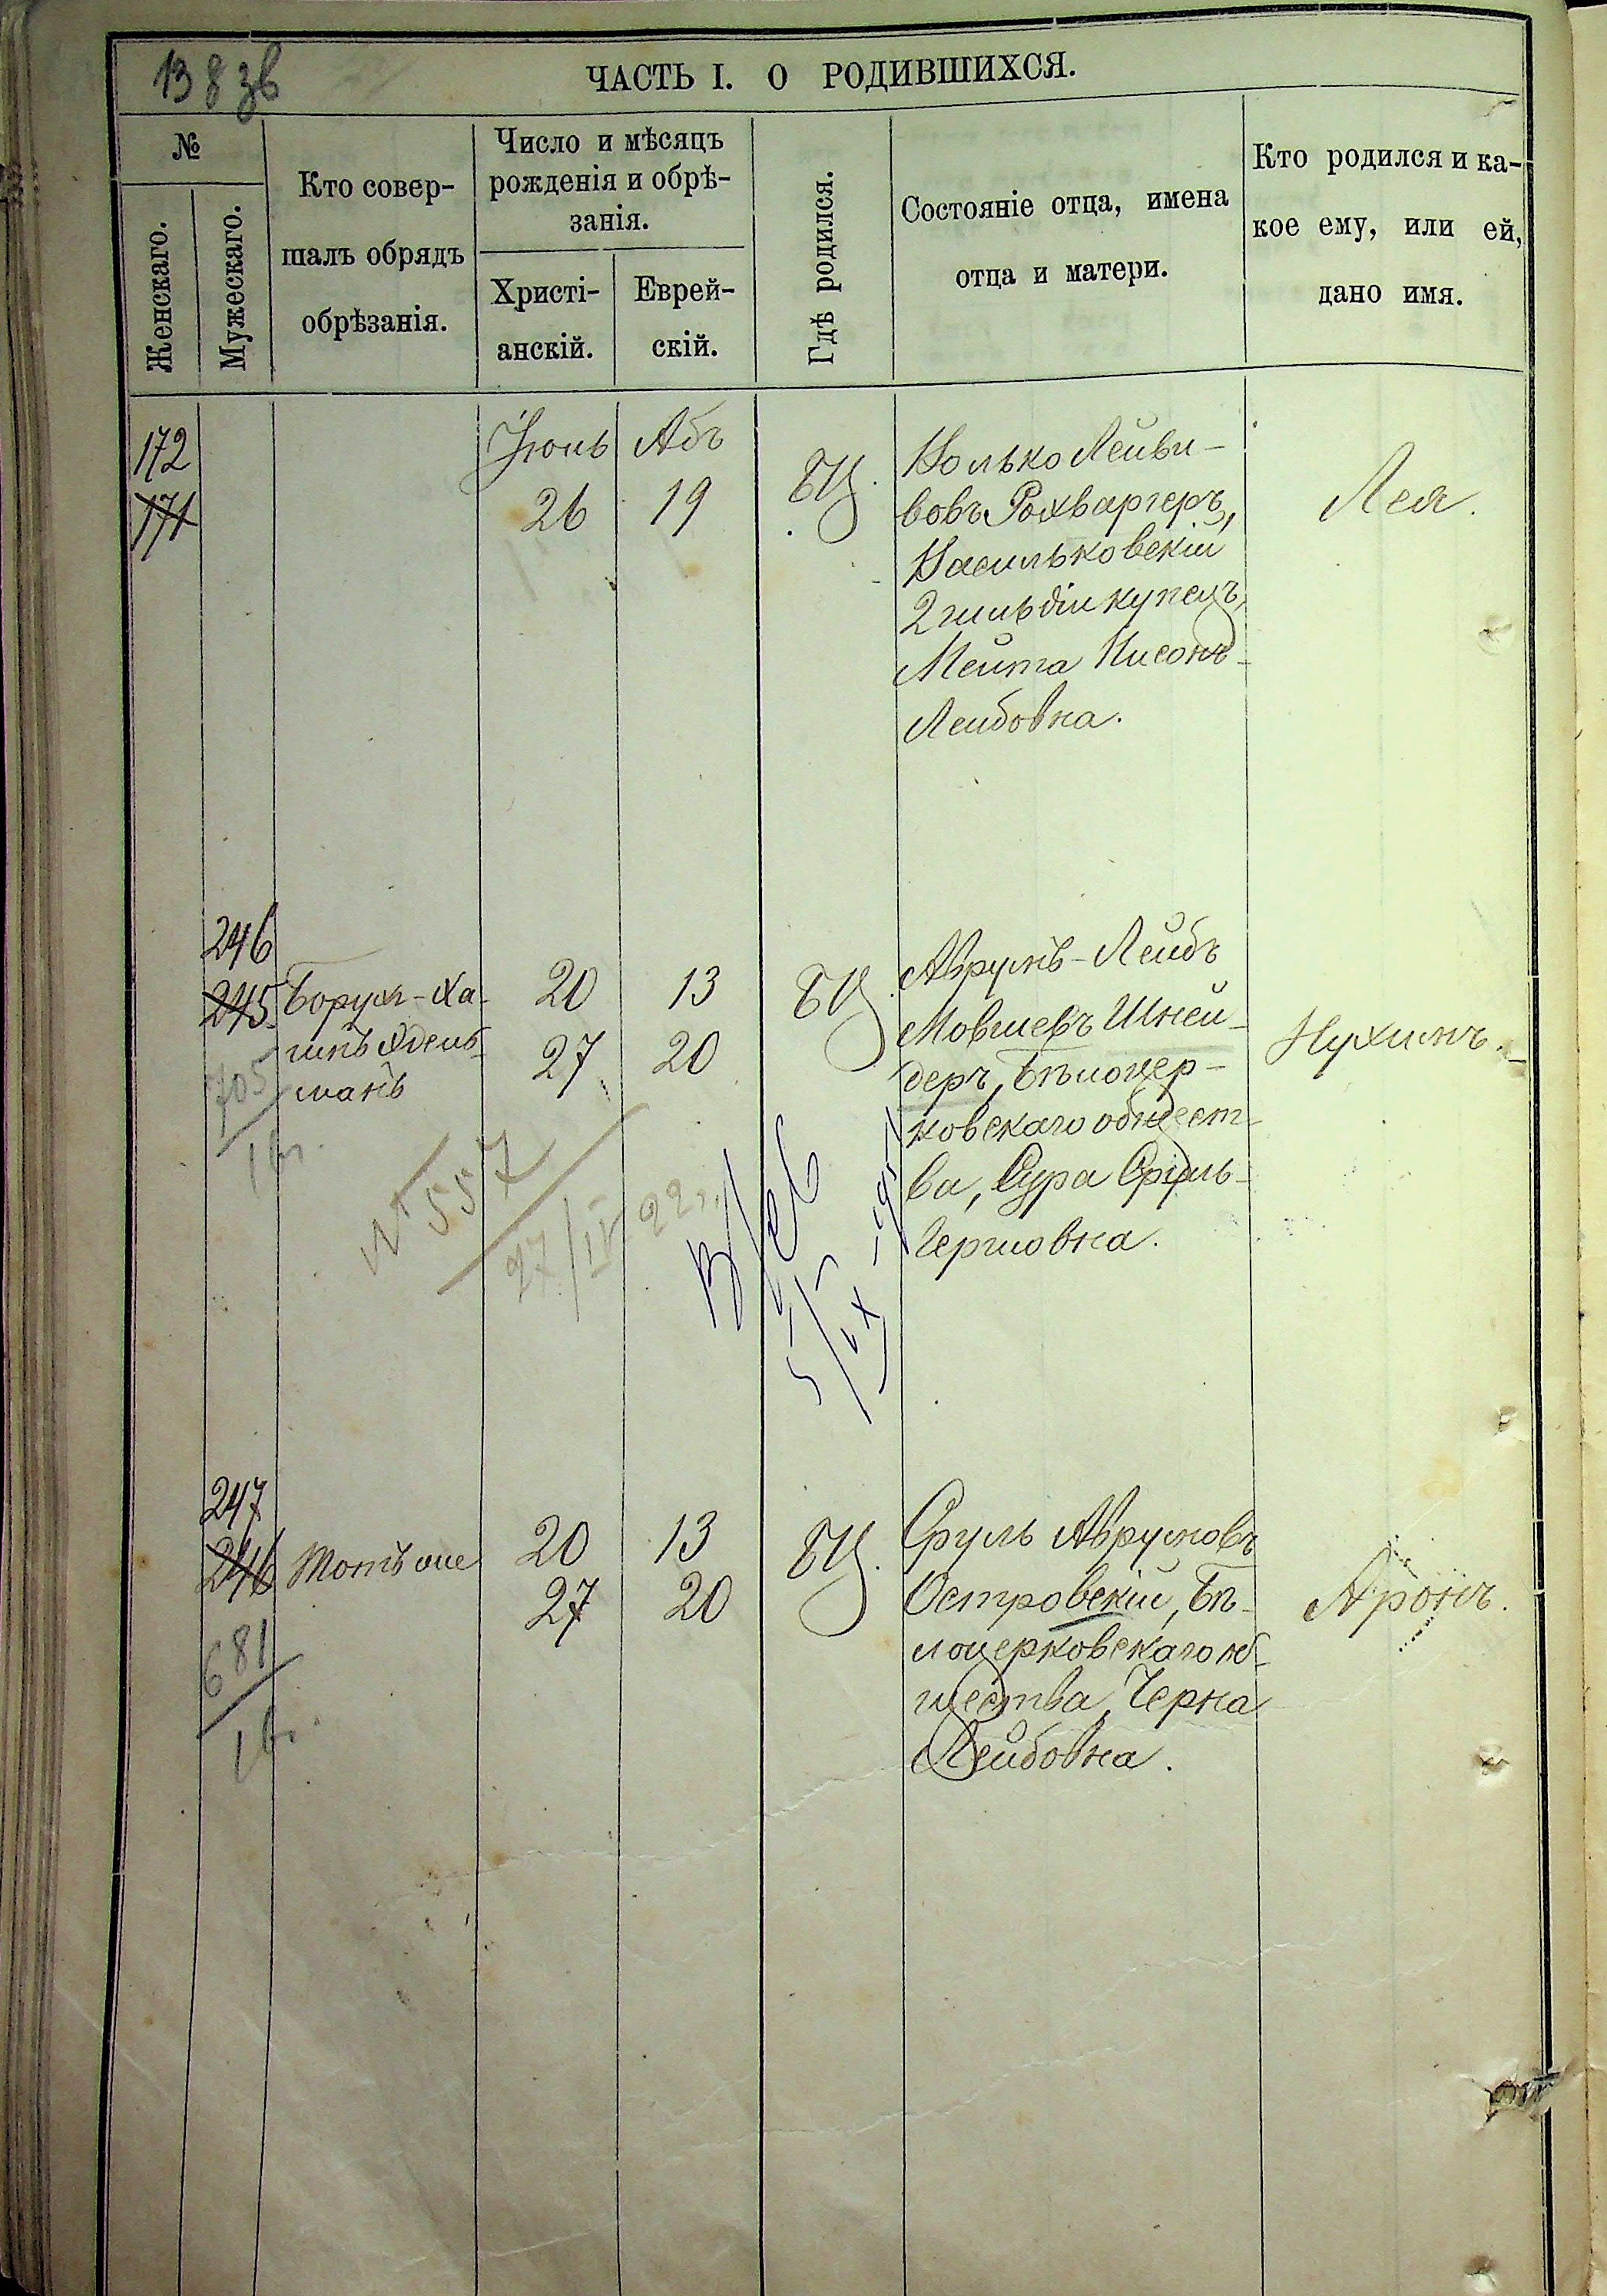 138 зв
ЧАСТЬ I. О РОДИВШИХСЯ.
№
Женскаго.
Мужескаго.
Кто совер-
шалъ обрядъ
обрѣзанія.
Число и мѣсяцъ
рожденія и обрѣ-
занія.
Христі-
анскій.
Еврей-
скій.
Гдѣ родился.
Состояніе отца, имена
отца и матери.
Кто родился и ка-
кое ему, или ей,
дано имя.
172
171
Іюнь
26
Абъ
19
БЦ.
Волько Лейви-
вовъ Рохваргеръ,
Васильковскій
2 гильдіи купецъ,
Мейта Нисонъ-
Лейбовна.
Лея.
246
245
705
Борухъ-Ха-
имъ Эдель-
манъ
20
27
13
20
БЦ.
Аврумъ-Лейбъ
Мовшевъ Шней-
деръ, Бѣлоцер-
ковскаго общест-
ва, Сура Сруль-
Гершовна.
Нухимъ.
№ 557
27/IV 22 г.
247
246
681
Тотъ же
20
27
13
20
БЦ.
Сруль Аврумовъ
Островскій, Бѣ-
лоцерковскаго об-
щества, Черна
Лейбовна.
Аронъ.